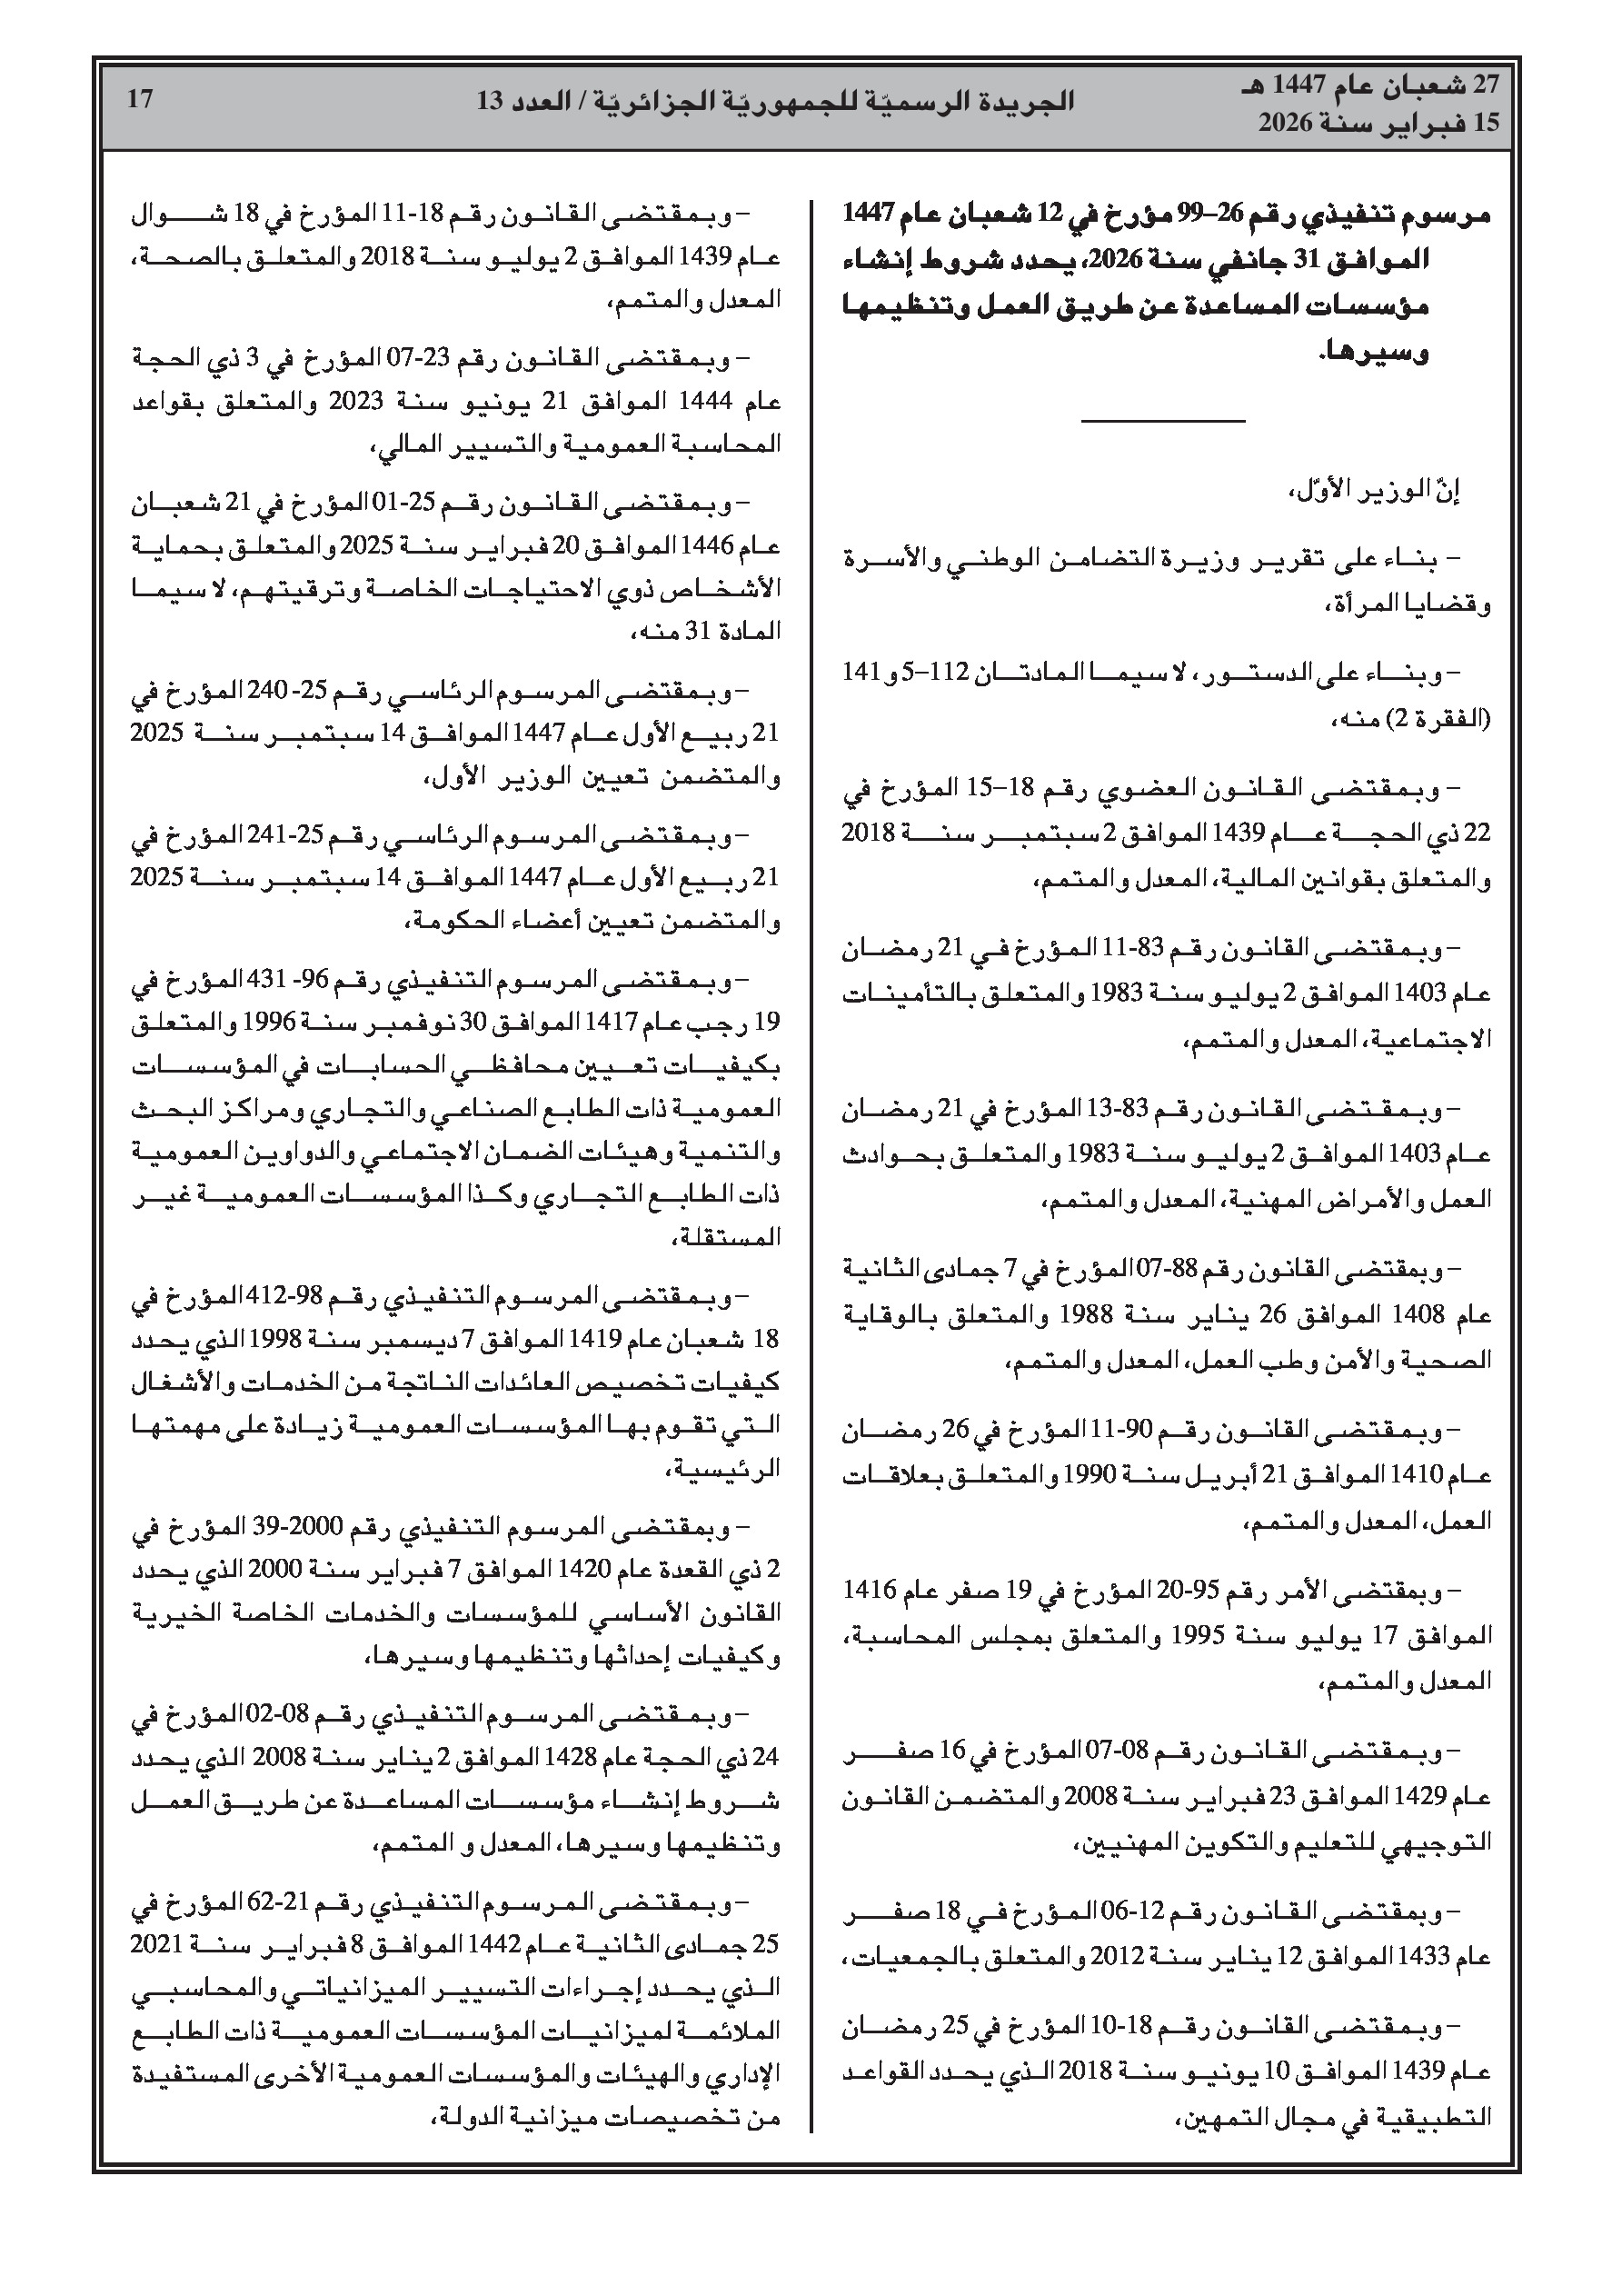 27 شعبان عام 1447 هـ
15 فبراير سنة 2026
الجريدة الرسميّة للجمهوريّة الجزائريّة / العدد 13
17
مرسوم تنفيذي رقم 26–99 مؤرخ في 12 شعبان عام 1447
الموافق 31 جانفي سنة 2026، يحدد شروط إنشاء
مؤسسات المساعدة عن طريق العمل وتنظيمها
وسيرها.
إنّ الوزير الأوّل،
– بناء على تقرير وزيرة التضامن الوطني والأسرة
وقضايا المرأة،
– وبناء على الدستور، لا سيما المادتان 112–5 و141
(الفقرة 2) منه،
– وبمقتضى القانون العضوي رقم 18–15 المؤرخ في
22 ذي الحجة عام 1439 الموافق 2 سبتمبر سنة 2018
والمتعلق بقوانين المالية، المعدل والمتمم،
– وبمقتضى القانون رقم 83-11 المؤرخ في 21 رمضان
عام 1403 الموافق 2 يوليو سنة 1983 والمتعلق بالتأمينات
الاجتماعية، المعدل والمتمم،
– وبمقتضى القانون رقم 83-13 المؤرخ في 21 رمضان
عام 1403 الموافق 2 يوليو سنة 1983 والمتعلق بحوادث
العمل والأمراض المهنية، المعدل والمتمم،
– وبمقتضى القانون رقم 88-07 المؤرخ في 7 جمادى الثانية
عام 1408 الموافق 26 يناير سنة 1988 والمتعلق بالوقاية
الصحية والأمن وطب العمل، المعدل والمتمم،
– وبمقتضى القانون رقم 90-11 المؤرخ في 26 رمضان
عام 1410 الموافق 21 أبريل سنة 1990 والمتعلق بعلاقات
العمل، المعدل والمتمم،
– وبمقتضى الأمر رقم 95-20 المؤرخ في 19 صفر عام 1416
الموافق 17 يوليو سنة 1995 والمتعلق بمجلس المحاسبة،
المعدل والمتمم،
– وبمقتضى القانون رقم 08-07 المؤرخ في 16 صفر
عام 1429 الموافق 23 فبراير سنة 2008 والمتضمن القانون
التوجيهي للتعليم والتكوين المهنيين،
– وبمقتضى القانون رقم 12-06 المؤرخ في 18 صفر
عام 1433 الموافق 12 يناير سنة 2012 والمتعلق بالجمعيات،
– وبمقتضى القانون رقم 18-10 المؤرخ في 25 رمضان
عام 1439 الموافق 10 يونيو سنة 2018 الذي يحدد القواعد
التطبيقية في مجال التمهين،
– وبمقتضى القانون رقم 18-11 المؤرخ في 18 شوال
عام 1439 الموافق 2 يوليو سنة 2018 والمتعلق بالصحة،
المعدل والمتمم،
– وبمقتضى القانون رقم 23-07 المؤرخ في 3 ذي الحجة
عام 1444 الموافق 21 يونيو سنة 2023 والمتعلق بقواعد
المحاسبة العمومية والتسيير المالي،
– وبمقتضى القانون رقم 25-01 المؤرخ في 21 شعبان
عام 1446 الموافق 20 فبراير سنة 2025 والمتعلق بحماية
الأشخاص ذوي الاحتياجات الخاصة وترقيتهم، لا سيما
المادة 31 منه،
– وبمقتضى المرسوم الرئاسي رقم 25- 240 المؤرخ في
21 ربيع الأول عام 1447 الموافق 14 سبتمبر سنة 2025
والمتضمن تعيين الوزير الأول،
– وبمقتضى المرسوم الرئاسي رقم 25-241 المؤرخ في
21 ربيع الأول عام 1447 الموافق 14 سبتمبر سنة 2025
والمتضمن تعيين أعضاء الحكومة،
– وبمقتضى المرسوم التنفيذي رقم 96- 431 المؤرخ في
19 رجب عام 1417 الموافق 30 نوفمبر سنة 1996 والمتعلق
بكيفيات تعيين محافظي الحسابات في المؤسسات
العمومية ذات الطابع الصناعي والتجاري ومراكز البحث
والتنمية وهيئات الضمان الاجتماعي والدواوين العمومية
ذات الطابع التجاري وكذا المؤسسات العمومية غير
المستقلة،
– وبمقتضى المرسوم التنفيذي رقم 98-412 المؤرخ في
18 شعبان عام 1419 الموافق 7 ديسمبر سنة 1998 الذي يحدد
كيفيات تخصيص العائدات الناتجة من الخدمات والأشغال
التي تقوم بها المؤسسات العمومية زيادة على مهمتها
الرئيسية،
– وبمقتضى المرسوم التنفيذي رقم 2000-39 المؤرخ في
2 ذي القعدة عام 1420 الموافق 7 فبراير سنة 2000 الذي يحدد
القانون الأساسي للمؤسسات والخدمات الخاصة الخيرية
وكيفيات إحداثها وتنظيمها وسيرها،
– وبمقتضى المرسوم التنفيذي رقم 08-02 المؤرخ في
24 ذي الحجة عام 1428 الموافق 2 يناير سنة 2008 الذي يحدد
شروط إنشاء مؤسسات المساعدة عن طريق العمل
وتنظيمها وسيرها، المعدل و المتمم،
– وبمقتضى المرسوم التنفيذي رقم 21-62 المؤرخ في
25 جمادى الثانية عام 1442 الموافق 8 فبراير سنة 2021
الذي يحدد إجراءات التسيير الميزانياتي والمحاسبي
الملائمة لميزانيات المؤسسات العمومية ذات الطابع
الإداري والهيئات والمؤسسات العمومية الأخرى المستفيدة
من تخصيصات ميزانية الدولة،